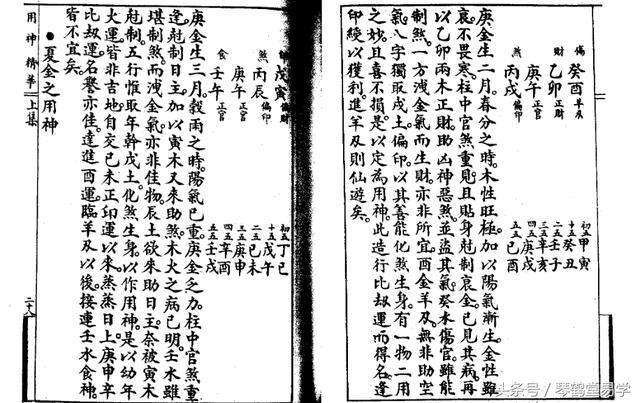 偏 癸酉 羊刃
財 乙卯 正財
庚午 正官
煞 丙戌 偏印
初五 甲寅
十五 癸丑
二五 壬子
三五 辛亥
四五 庚戌
五五 己酉
庚金生二月。春分之時。木性旺極。加以陽氣漸生。金性雖
衰。不畏寒。柱中官煞重見。且貼身尅制。衰金已見其病。再
以乙卯兩木正財。助凶神惡煞。並盜其氣。癸水傷官。雖能
制煞。一方洩金氣而生財。亦非所宜。酉金羊刃。無非助空
氣。八字獨取戌土偏印。以其善能化煞生身。有一物二用
之妙。且喜不損。是以定為用神。此造行比刼運而得名。逢
印綬以獲利。進羊刃則仙遊矣。
戊寅 偏財
煞 丙辰 偏印
庚午 正官
食 壬午 正官
初五 丁巳
十五 戊午
二五 己未
三五 庚申
四五 辛酉
五五 壬戌
庚金生三月。穀雨之時。陽氣已重。庚金乏力。柱中官煞重
逢。尅制日主。加以寅木又來助煞。木火之病已明。壬水雖
堪制煞。而洩金氣。亦非佳物。辰土欲來助日主。奈被寅木
尅制。五行惟取年幹戊土。化煞生身。以作用神。是以幼年
火運。皆非吉地。自交己未正印運以來。蒸蒸日上。庚申辛
比刼運。名譽亦佳。進酉運。臨羊刃。以後接連壬水食神。
皆不宜矣。
●夏金之用神
用神精華 上集 二十八
头条号 / 琴鹤堂易学